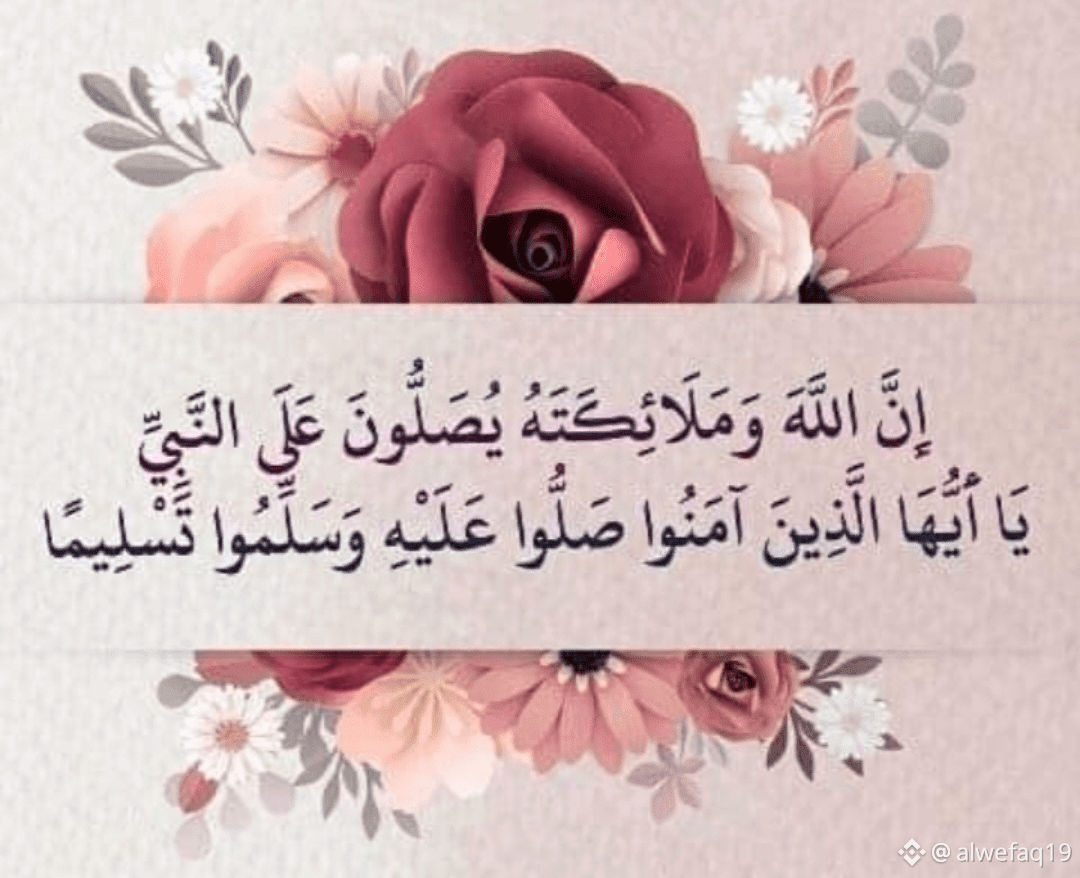 إِنَّ اللَّهَ وَمَلَائِكَتَهُ يُصَلُّونَ عَلَى النَّبِيِّ
يَا أَيُّهَا الَّذِينَ آمَنُوا صَلُّوا عَلَيْهِ وَسَلِّمُوا تَسْلِيمًا
@ alwefaq19